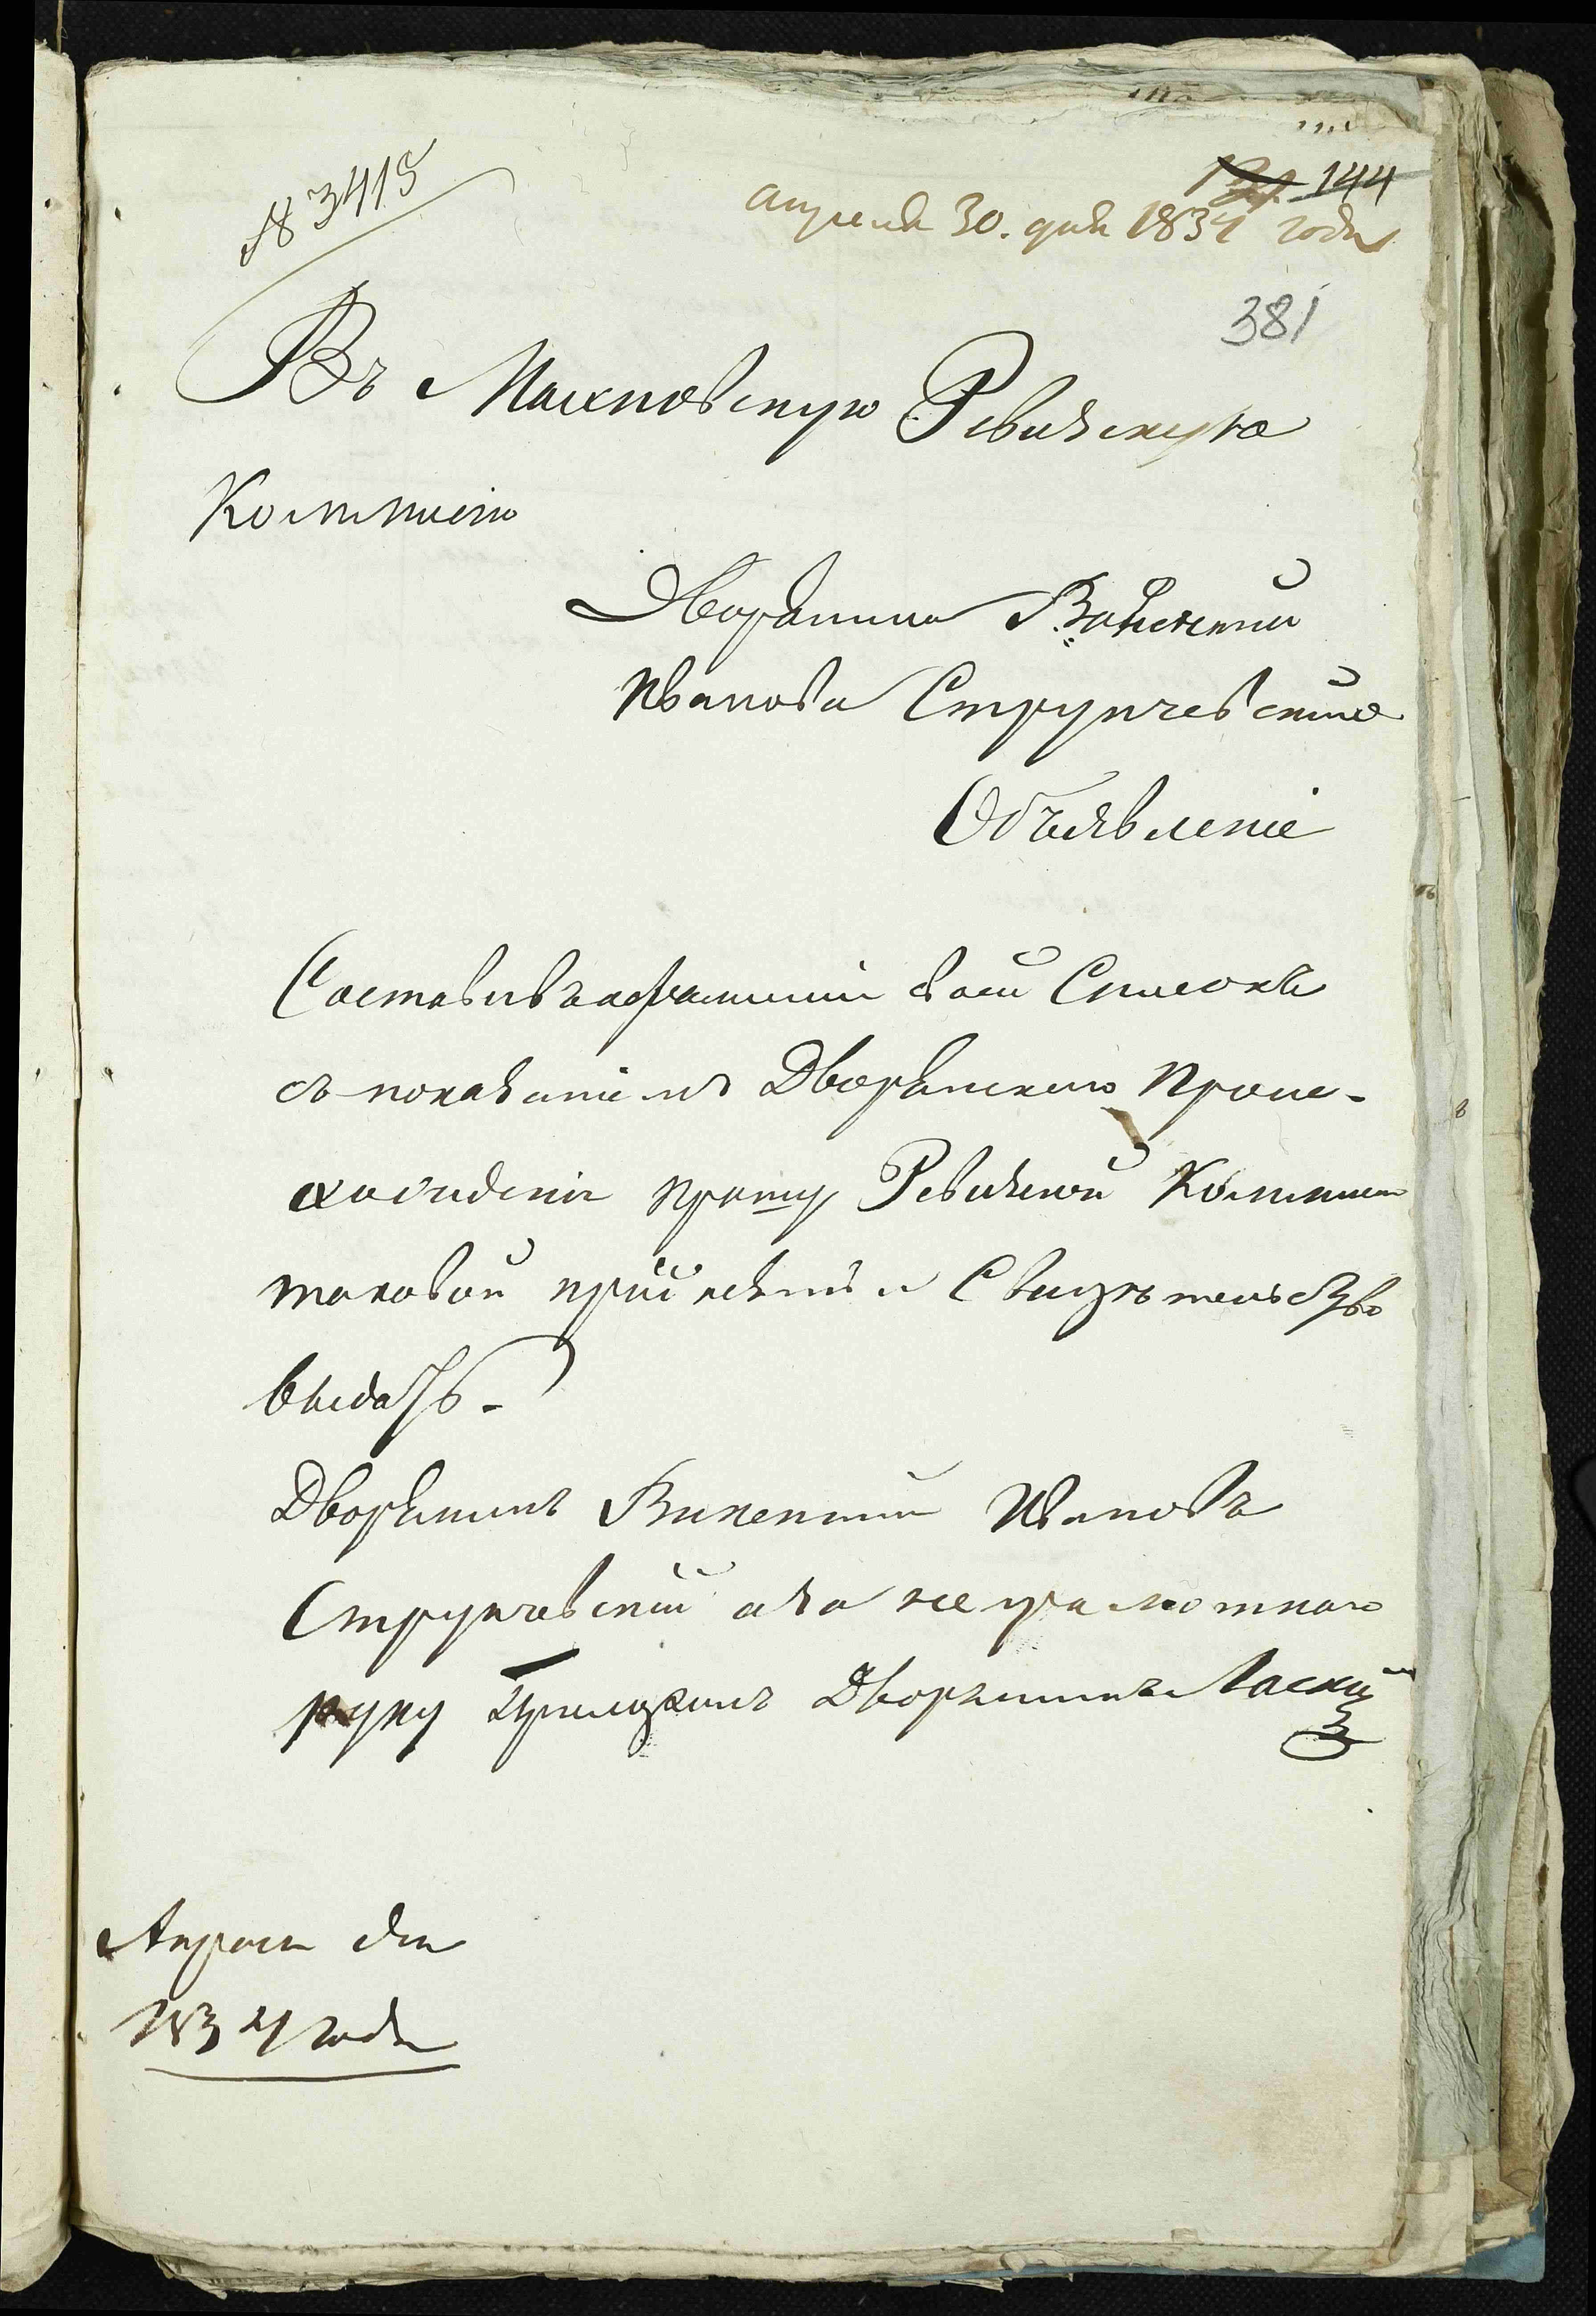 № 3415
144
апреля 30. дня 1834 года
381
Въ Махновскую Ревизскую
Коммисію
Дворянина Викентія
Иванова Струпчевскаго
Объявленіе
Составивъ о фамиліи своей Списокъ
съ показаніемъ Дворянскаго Проис-
хожденія прошу Ревизской Коммисіи
таковой принять и Свидѣтельство
выдать.
Дворянинъ Викентій Ивановъ
Струпчевскій а за неграмотнаго
руку приложилъ Дворянинъ Ласкій
Апреля дня
1834 года